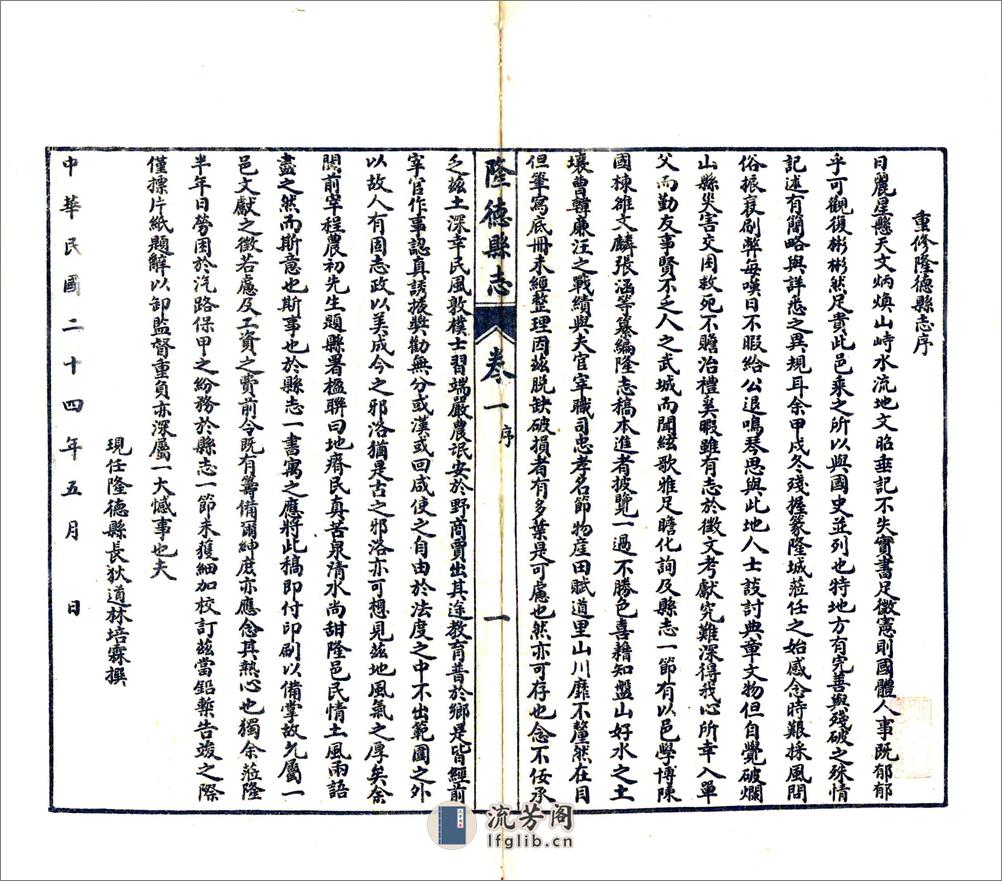 重修隆德縣志序
日麗星懸天文炳煥山峙水流地文昭垂記不失實書足徵憲則國體人事既郁郁
乎可觀復彬彬然足貴此邑乘之所以與國史並列也特地方有完善與殘破之殊情
記述有簡略與詳悉之異規耳余甲戌冬殘握篆隆城蒞任之始感念時艱採風問
俗振衰剔弊每嘆日不暇給公退鳴琴思與此地人士該討典章文物但自覺破爛
山縣災害交困救死不贍治禮奚暇雖有志於徵文考獻究難深得我心所幸入單
父而勤友事賢不乏人之武城而聞絃歌雅足瞻化詢及縣志一節有以邑學博陳
國棟雒文麟張涵等纂編隆志稿本進者披覽一過不勝色喜藉知盤山好水之土
壤曹韓廉汪之戰績與夫官宰職司忠孝名節物産田賦道里山川靡不釐然在目
但筆寫底冊未經整理因茲脫缺破損者有多葉是可慮也然亦可存也念不佞承
隆德縣志
卷一
序
一
乏茲土深幸民風敦樸士習端嚴農氓安於野商賈出其途教育普於鄉是皆經前
宰官作事認真誘掖獎勸無分或漢或回咸使之自由於法度之中不出範圍之外
以故人有固志政以美成今之邪洛猶是古之邪洛亦可想見茲地風氣之厚矣余
閱前宰程農初先生題縣署楹聯曰地瘠民真苦泉清水尚甜隆邑民情土風兩語
盡之然而斯意也斯事也於縣志一書寓之應將此稿即付印刷以備掌故允屬一
邑文獻之徵若慮及工資之費前令既有籌備爾紳庶亦應念其熱心也獨余蒞隆
半年日勞困於汽路保甲之紛務於縣志一節未獲細加校訂茲當鉛槧告竣之際
僅摽片紙題解以卸監督重負亦深屬一大憾事也夫
現任隆德縣長狄道林培霖撰
中華民國二十四年五月 日
流芳阁
lfglib.cn